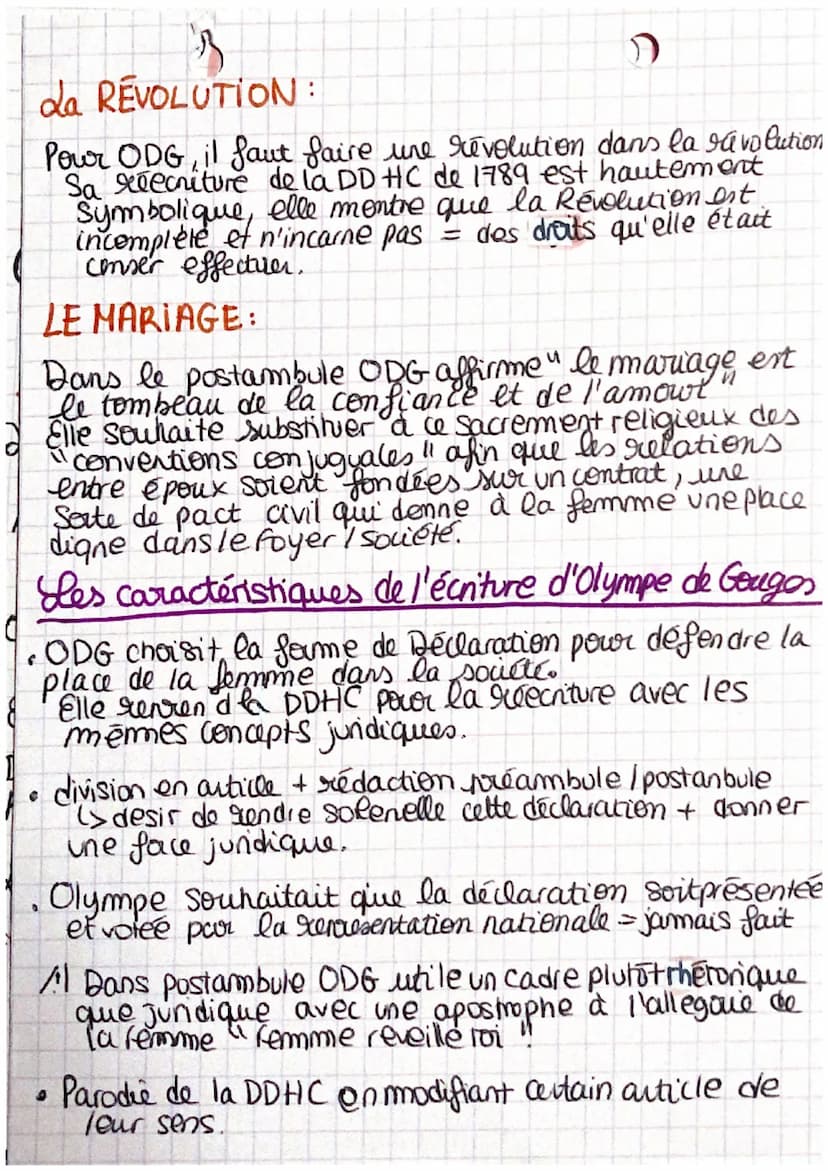 La RÉVOLUTION :
Pour ODG, il faut faire une révolution dans la révolution
Sa réecriture de la DDHC de 1789 est hautement
symbolique, elle montre que la Révolution est
incomplète et n'incarne pas = des droits qu'elle était
censer effectuer.
LE MARIAGE :
Dans le postambule ODG affirme " le mariage est
le tombeau de la confiance et de l'amour "
Elle souhaite substituer à ce sacrement religieux des
" conventions conjuguales " afin que les relations
entre époux soient fondées sur un contrat, une
sorte de pact civil qui donne à la femme une place
digne dans le foyer / société.
Les caractéristiques de l'écriture d'Olympe de Gouges
• ODG choisit la forme de Déclaration pour défendre la
place de la femme dans la société.
Elle reprend la DDHC pour la réecriture avec les
mêmes concepts juridiques.
• division en article + rédaction préambule / postanbule
↳ desir de rendre solenelle cette déclaration + donner
une face juridique.
• Olympe souhaitait que la déclaration soit présentée
et votée par la représentation nationale = jamais fait
/!\ Dans postambule ODG utile un cadre plutôt rhétorique
que juridique avec une apostrophe à l'allégorie de
la femme " femme reveille toi "
• Parodie de la DDHC en modifiant certain article de
leur sens.